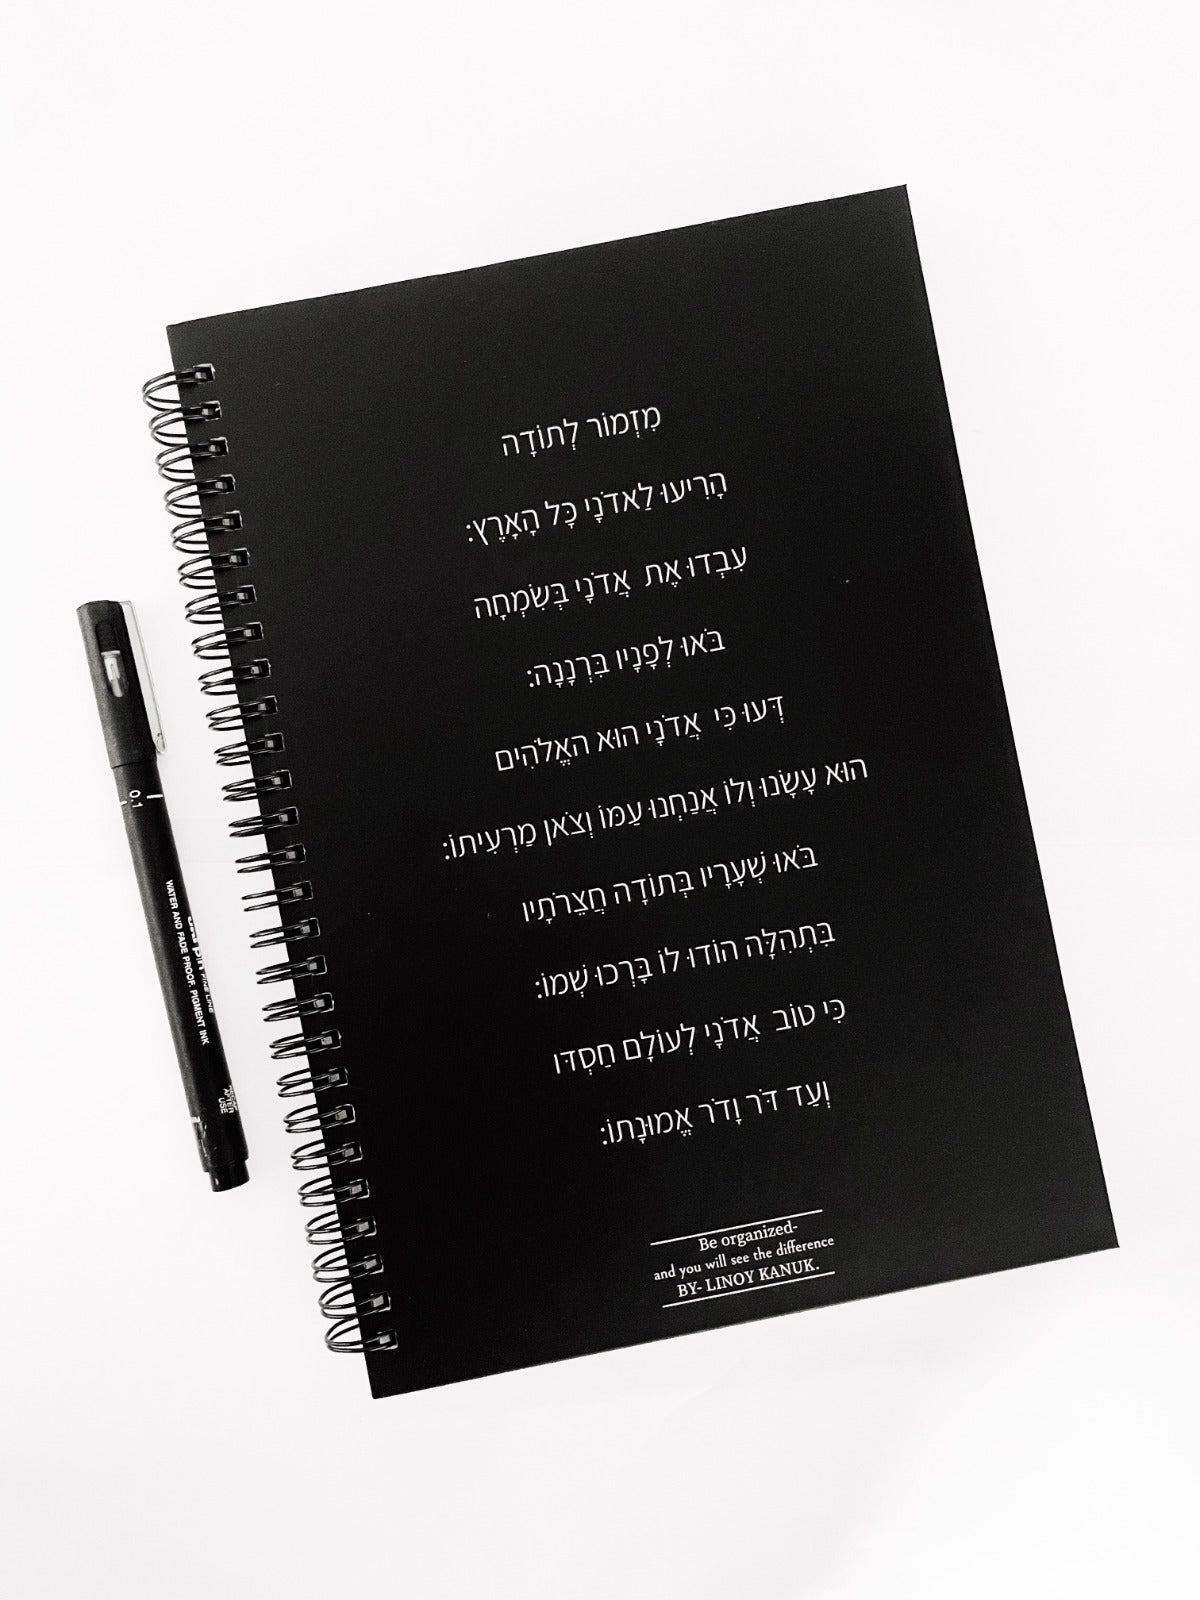 מִזְמוֹר לְתוֹדָה
הָרִיעוּ לַאדֹנָי כָּל הָאָרֶץ:
עִבְדוּ אֶת אֲדֹנָי בְּשִׂמְחָה
בֹּאוּ לְפָנָיו בִּרְנָנָה:
דְּעוּ כִּי אֲדֹנָי הוּא הָאֱלֹהִים
הוּא עָשָׂנוּ וְלוֹ אֲנַחְנוּ עַמּוֹ וְצֹאן מַרְעִיתוֹ:
בֹּאוּ שְׁעָרָיו בְּתוֹדָה חֲצֵרֹתָיו
בִּתְהִלָּה הוֹדוּ לוֹ בָּרְכוּ שְׁמוֹ:
כִּי טוֹב אֲדֹנָי לְעוֹלָם חַסְדּוֹ
וְעַד דֹּר וָדֹר אֱמוּנָתוֹ:
Be organized-
and you will see the difference
BY- LINOY KANUK.
0.1
FINE LINE
WATER AND FADE PROOF. PIGMENT INK
AFTER
USE